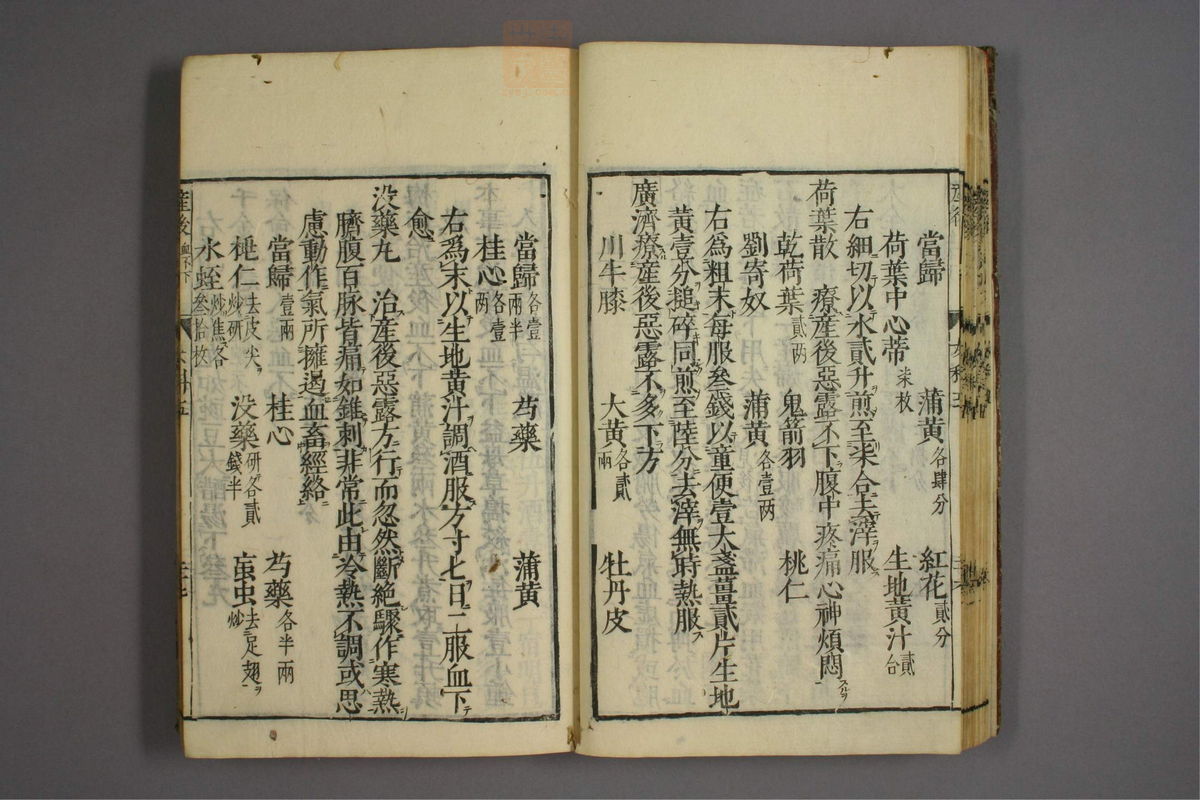 當歸 蒲黃各肆分 紅花貳分
荷葉中心蒂柒枚 生地黃汁貳合
右細切以水貳升煎至柒合去滓服
荷葉散 療產後惡露不下腹中疼痛心神煩悶
乾荷葉貳兩 鬼箭羽 桃仁
劉寄奴 蒲黃各壹兩
右爲粗末每服叁錢以童便壹大盞薑貳片生地
黃壹分搥碎同煎至陸分去滓無時熱服
廣濟療產後惡露不多下方
川牛膝 大黃各貳兩 牡丹皮
當歸各壹兩半 芍藥 蒲黃
桂心各壹兩
右爲末以生地黃汁調酒服方寸匕日二服血下
愈
没藥丸 治産後惡露方行而忽然斷絶驟作寒熱
臍腹百脉皆痛如錐刺非常此由冷熱不調或思
慮動作氣所擁遏血畜經絡
當歸壹兩 桂心 芍藥各半兩
桃仁去皮尖炒研 没藥研各貳錢半 䖟虫去足翅炒
水蛭炒焦各叁拾枚
産後